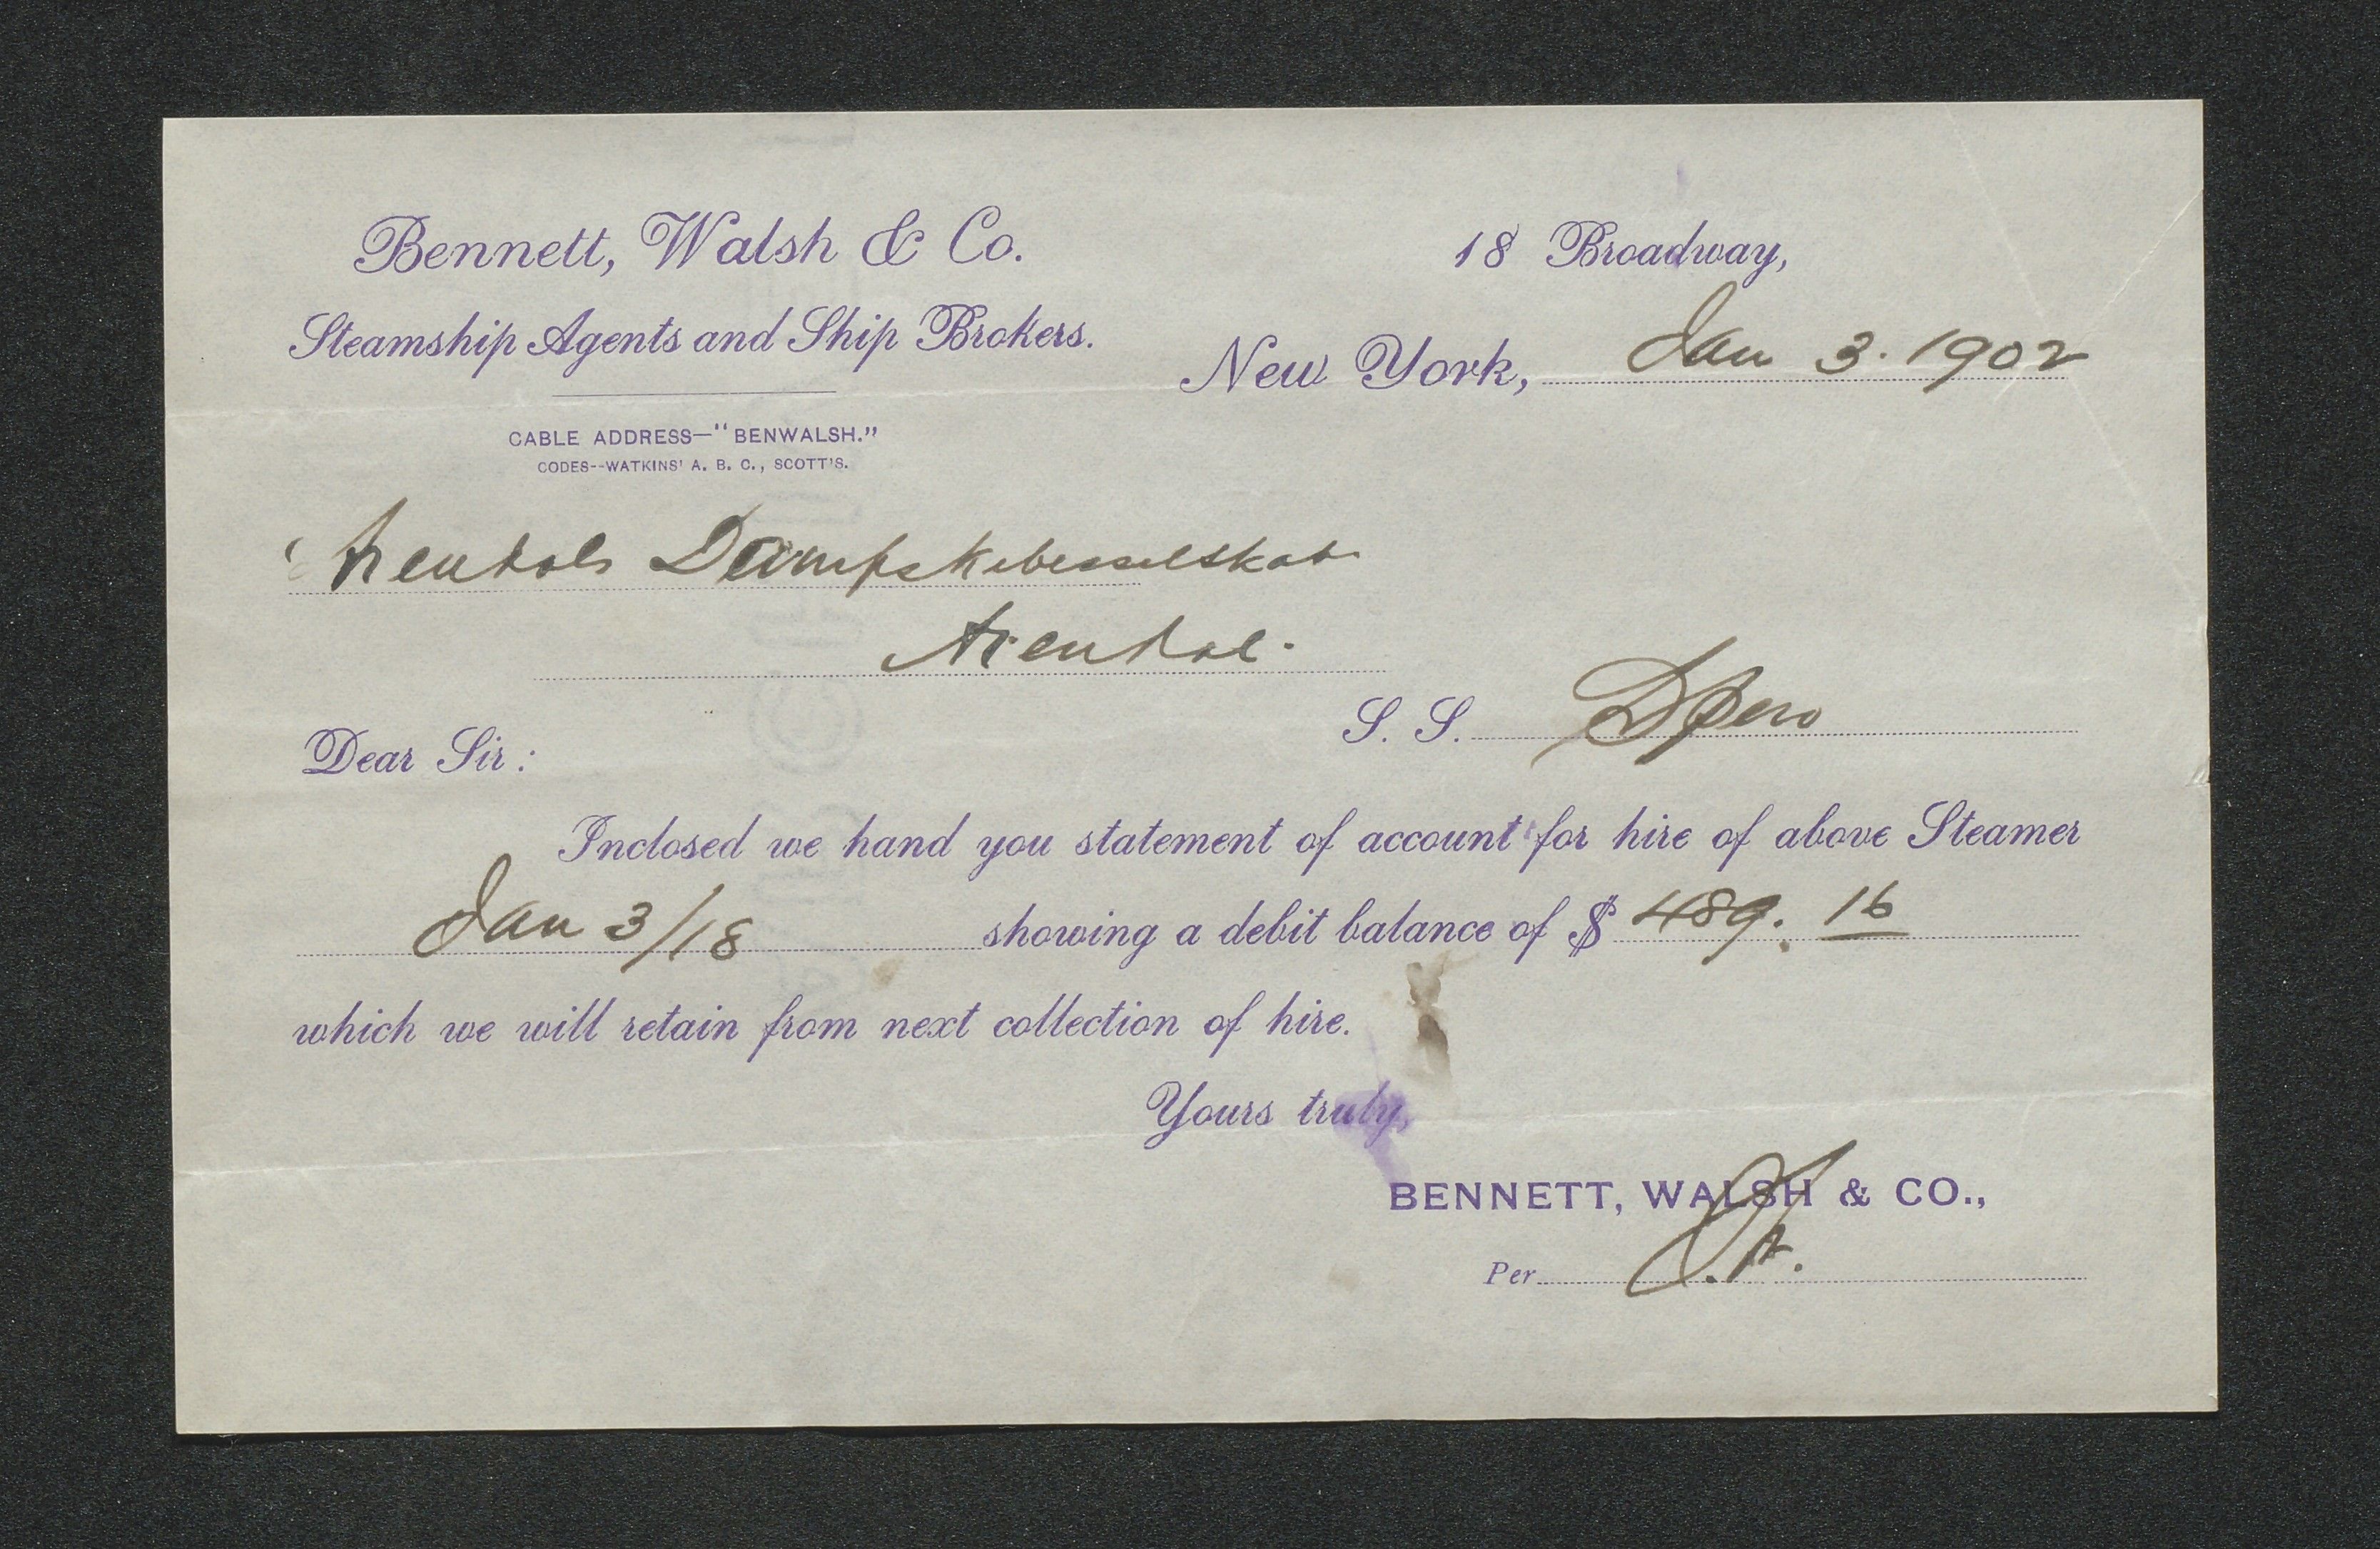 Bennett, Walsh & Co.
Steamship Agents and Ship Brokers.
CABLE ADDRESS—"BENWALSH."
CODES--WATKINS' A. B. C., SCOTT'S.
18 Broadway,
New York, Jan 3. 1902
Arendals Dampskibesselskab
Arendal.
S. S.
Dear Sir:
Inclosed we hand you statement of account for hire of above Steamer
Jan 3/18 showing a debit balance of $ 489. 16
which we will retain from next collection of hire.
Yours truly,
BENNETT, WALSH & CO.,
Per